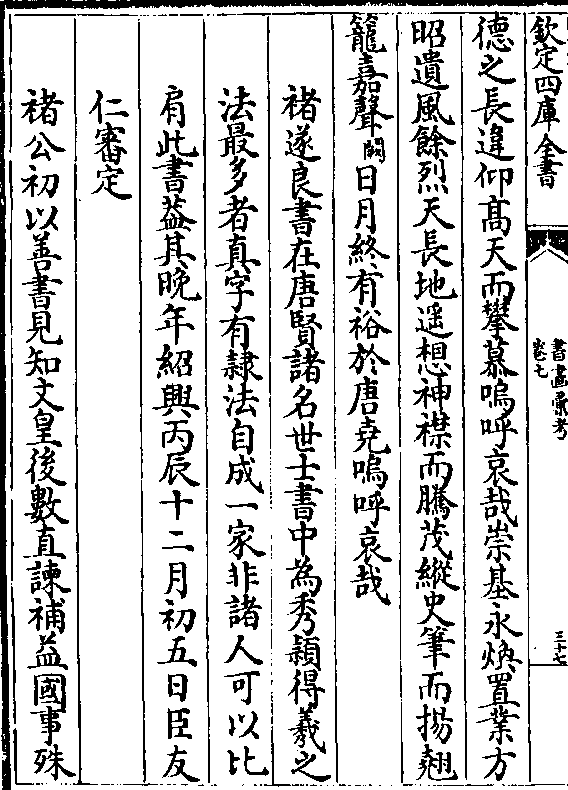 欽定四庫全書
書畫彙考
卷七
三十七
德之長違仰高天而攀慕嗚呼哀哉崇基永煥置業方
昭遺風餘烈天長地遥想神襟而騰茂縱史筆而揚翹
籠嘉聲闕日月終有裕於唐堯嗚呼哀哉
褚遂良書在唐賢諸名世士書中為秀穎得羲之
法最多者真字有隸法自成一家非諸人可以比
肩此書葢其晚年紹興丙辰十二月初五日臣友
仁審定
褚公初以善書見知文皇後數直諫補益國事殊